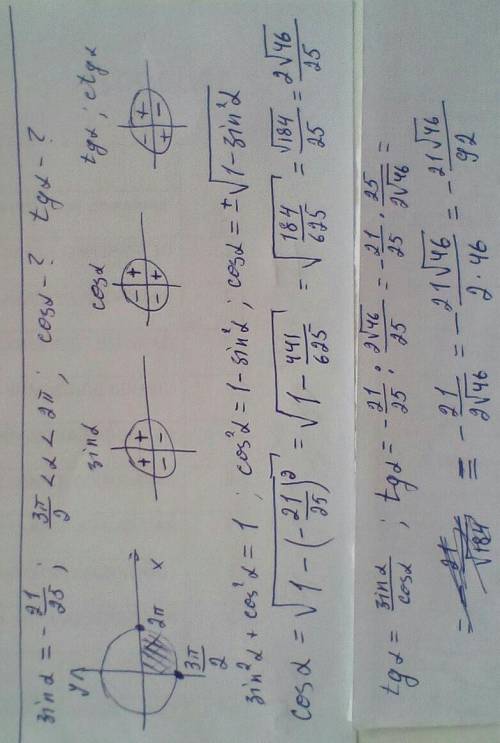 sinα = -21/25; 3π/2 < α < 2π; cosα - ? tgα - ?
y x 2π 3π/2
sinα + + - -
cosα - + - +
tgα; ctgα - + + -
sin²α + cos²α = 1; cos²α = 1 - sin²α; cosα = ±√(1 - sin²α)
cosα = √(1 - (-21/25)²) = √(1 - 441/625) = √(184/625) = √184/25 = 2√46/25
tgα = sinα/cosα; tgα = -21/25 : 2√46/25 = -21/25 · 25/2√46 =
= -21/2√46 = -21√46/2·46 = -21√46/92